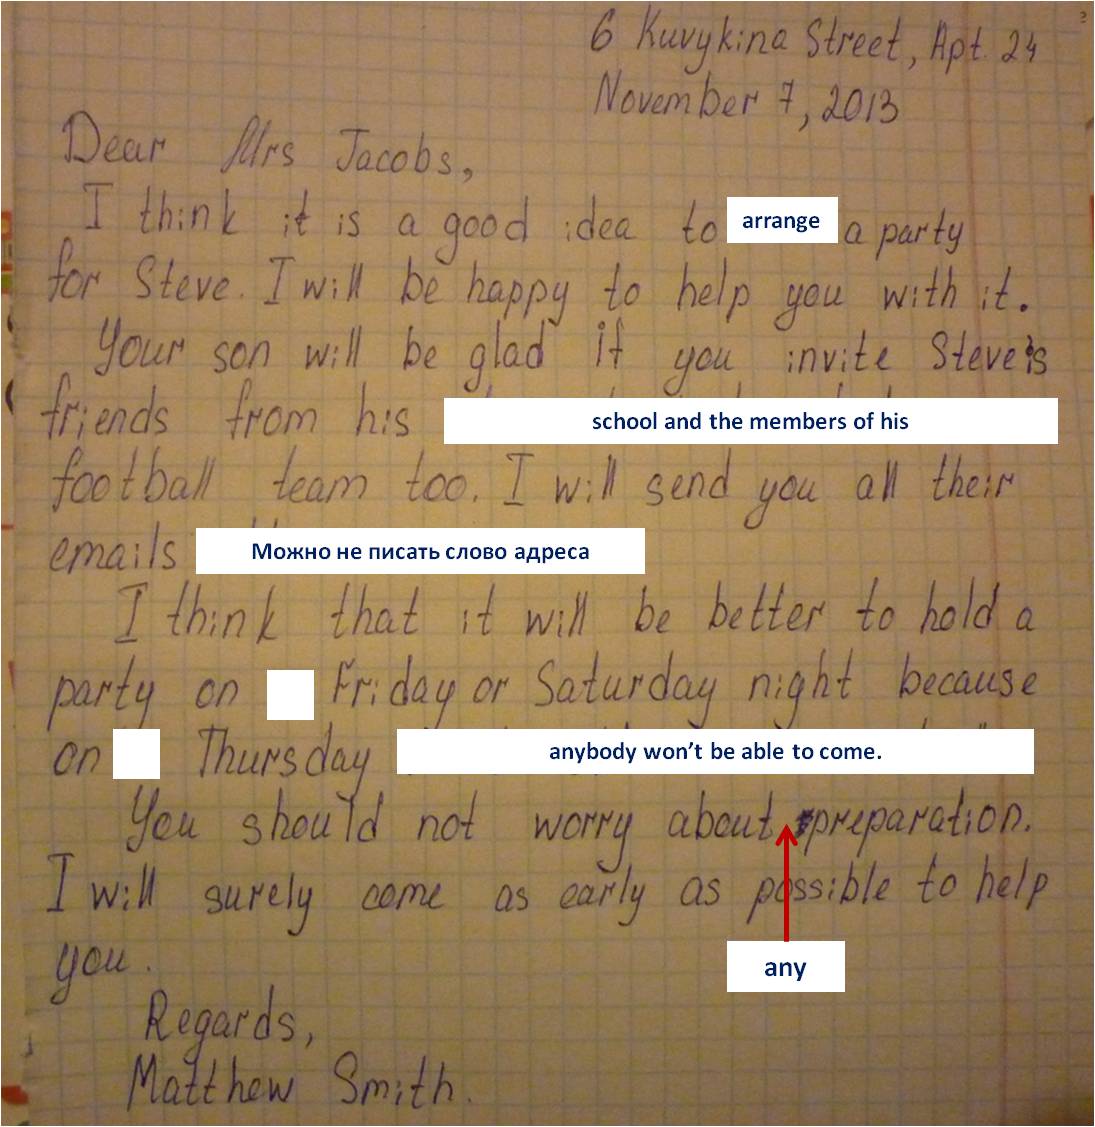 6 Kuvykina Street, Apt. 24
November 7, 2013
Dear Mrs Jacobs,
I think it is a good idea to arrange a party
for Steve. I will be happy to help you with it.
Your son will be glad if you invite Steve's
friends from his school and the members of his
football team too. I will send you all their
emails Можно не писать слово адреса
I think that it will be better to hold a
party on Friday or Saturday night because
on Thursday anybody won't be able to come.
You should not worry about preparation.
I will surely come as early as possible to help
you.
any
Regards,
Matthew Smith.